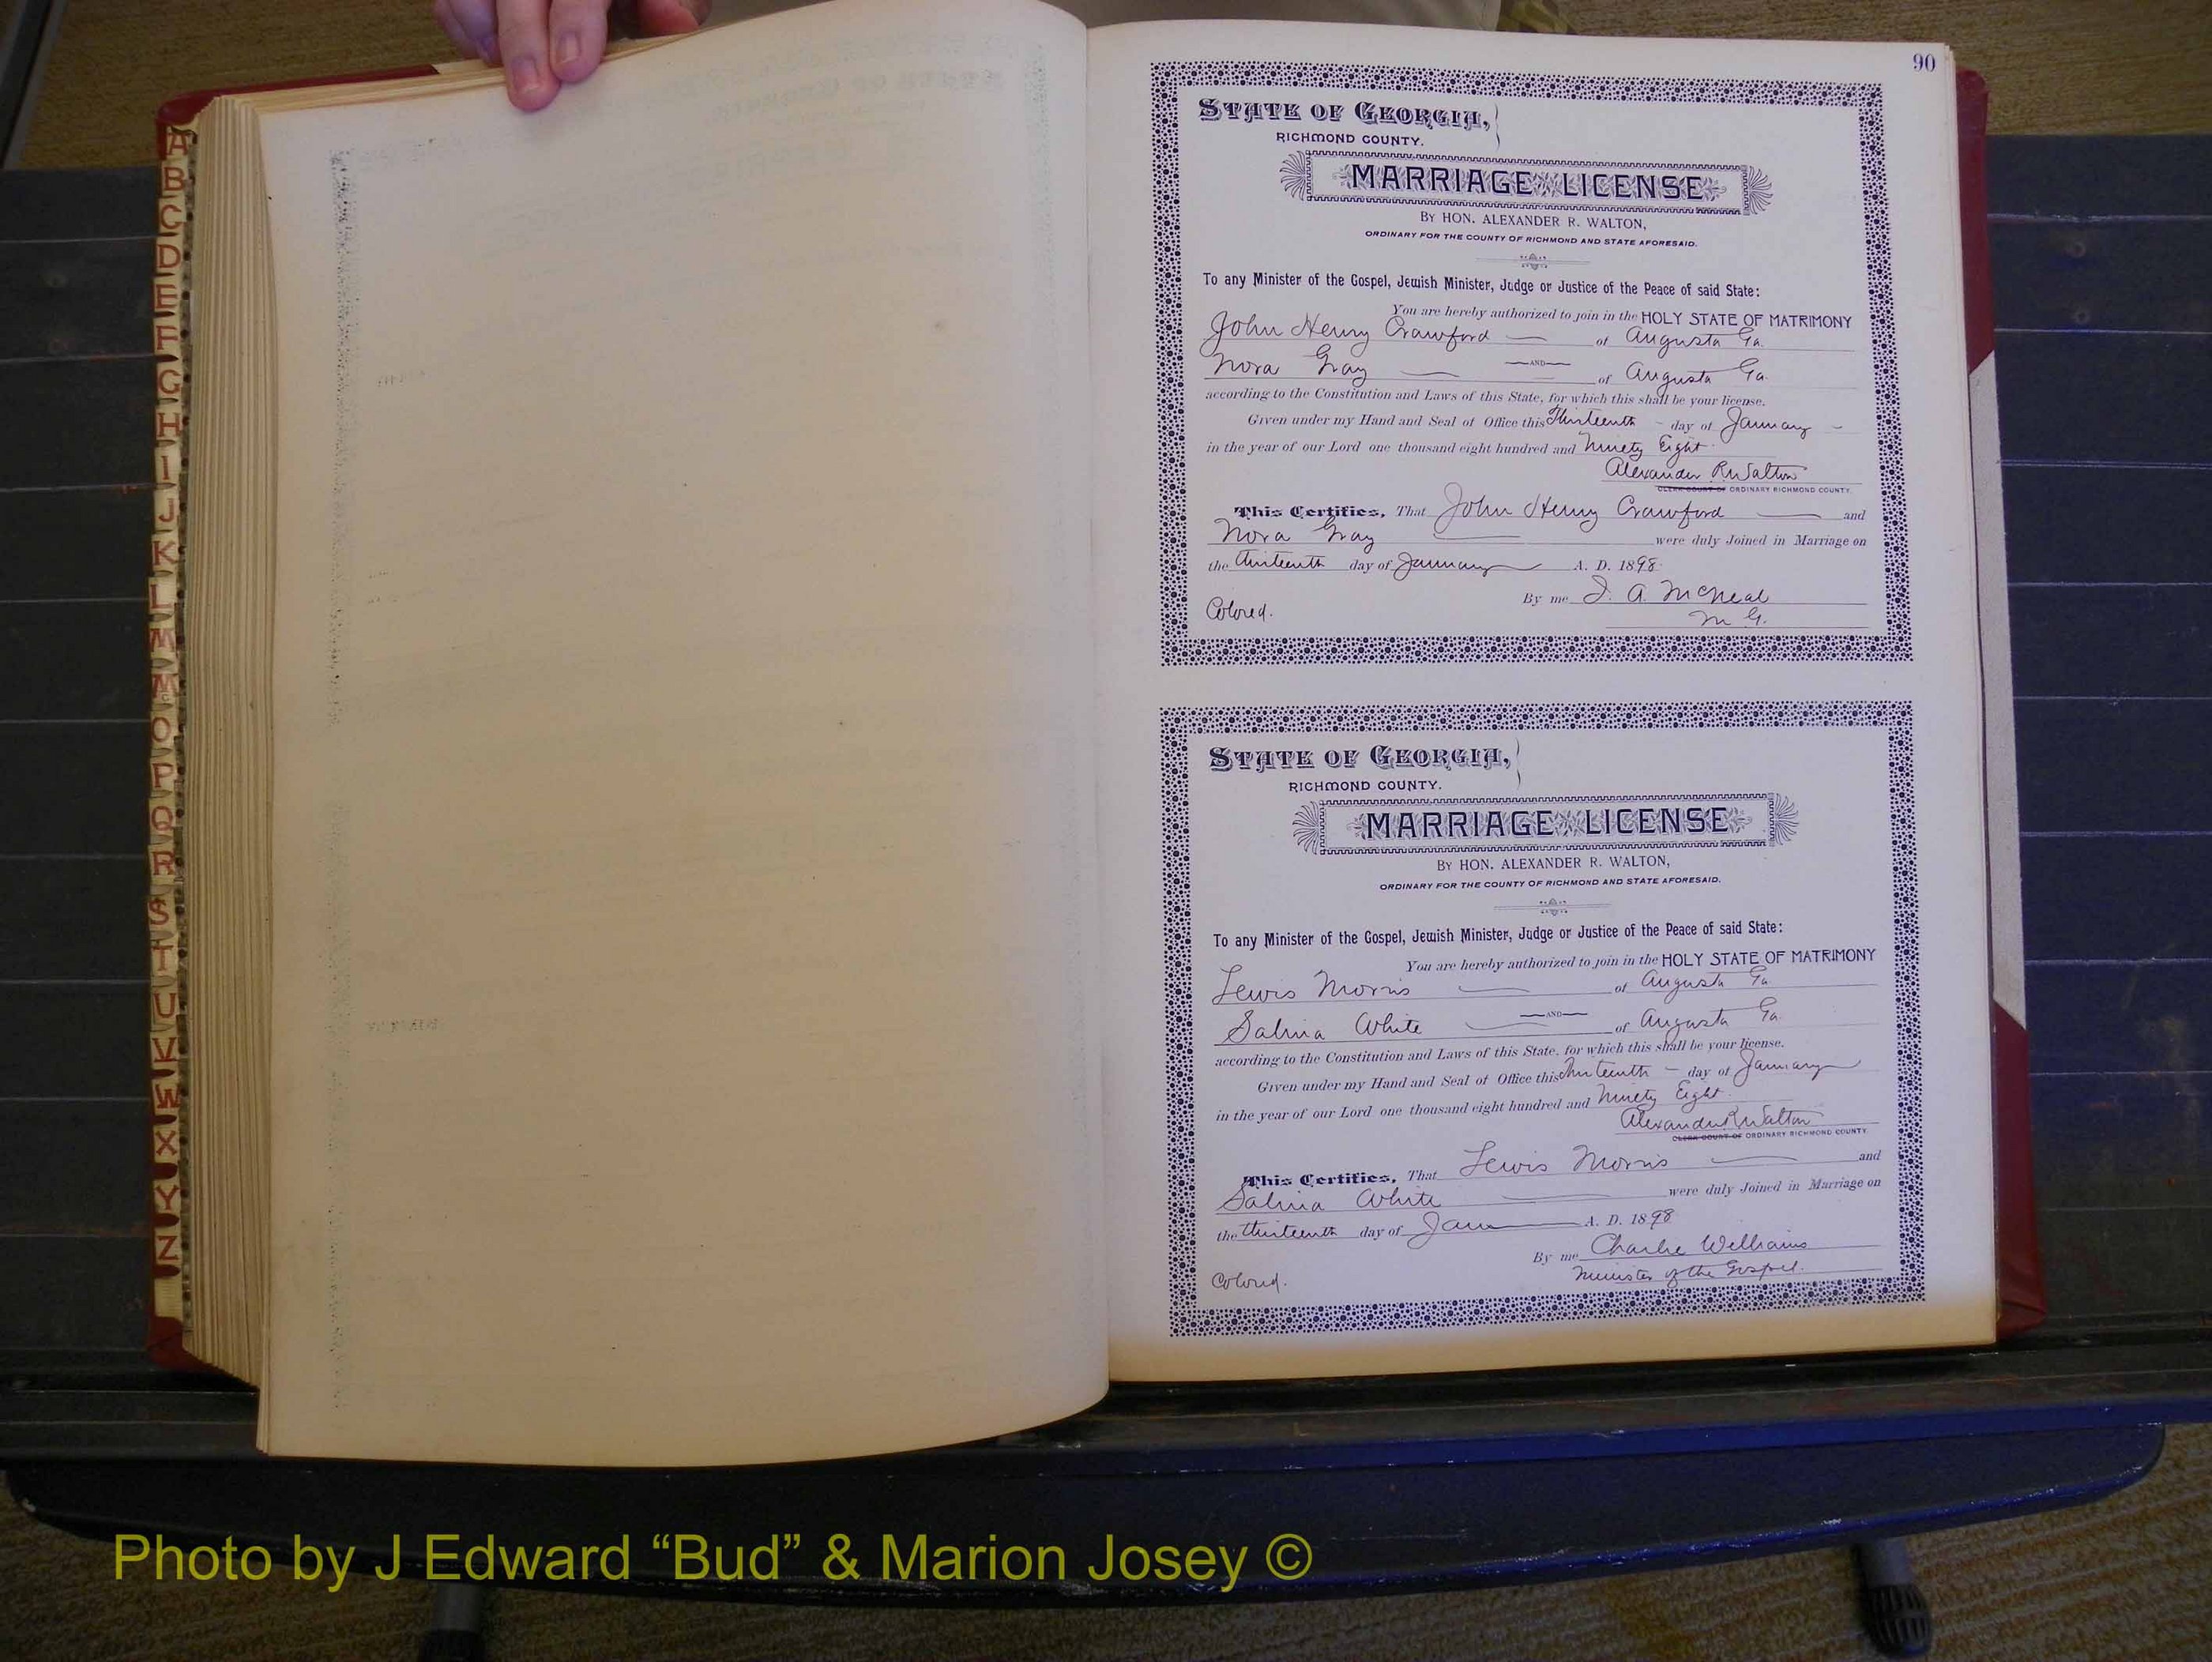 A
B
C
D
E
F
G
H
I
J
K
L
M
Mc
O
P
Q
R
S
T
U
V
W
X
Y
Z
90
STATE OF GEORGIA,
RICHMOND COUNTY.
MARRIAGE LICENSE
BY HON. ALEXANDER R. WALTON,
ORDINARY FOR THE COUNTY OF RICHMOND AND STATE AFORESAID.
To any Minister of the Gospel, Jewish Minister, Judge or Justice of the Peace of said State:
You are hereby authorized to join in the HOLY STATE OF MATRIMONY
John Henry Crawford — of Augusta Ga.
—AND—
Nora Gray — of Augusta Ga.
according to the Constitution and Laws of this State, for which this shall be your license.
Given under my Hand and Seal of Office this Thirteenth - day of January -
in the year of our Lord one thousand eight hundred and Ninety Eight
Alexander R Walton
CLERK COURT OF ORDINARY RICHMOND COUNTY.
This Certifies, That John Henry Crawford — and
Nora Gray — were duly Joined in Marriage on
the thirteenth day of January A. D. 1898
By me J. A. McNeal
M G.
Colored.
STATE OF GEORGIA,
RICHMOND COUNTY.
MARRIAGE LICENSE
BY HON. ALEXANDER R. WALTON,
ORDINARY FOR THE COUNTY OF RICHMOND AND STATE AFORESAID.
To any Minister of the Gospel, Jewish Minister, Judge or Justice of the Peace of said State:
You are hereby authorized to join in the HOLY STATE OF MATRIMONY
Lewis Morris — of Augusta Ga
—AND—
Salina White — of Augusta Ga.
according to the Constitution and Laws of this State, for which this shall be your license.
Given under my Hand and Seal of Office this thirteenth - day of January
in the year of our Lord one thousand eight hundred and Ninety Eight
Alexander R Walton
CLERK COURT OF ORDINARY RICHMOND COUNTY.
This Certifies, That Lewis Morris — and
Salina White — were duly Joined in Marriage on
the thirteenth day of Jan A. D. 1898
By me Charlie Williams
Minister of the Gospel.
Colored.
Photo by J Edward “Bud” & Marion Josey ©